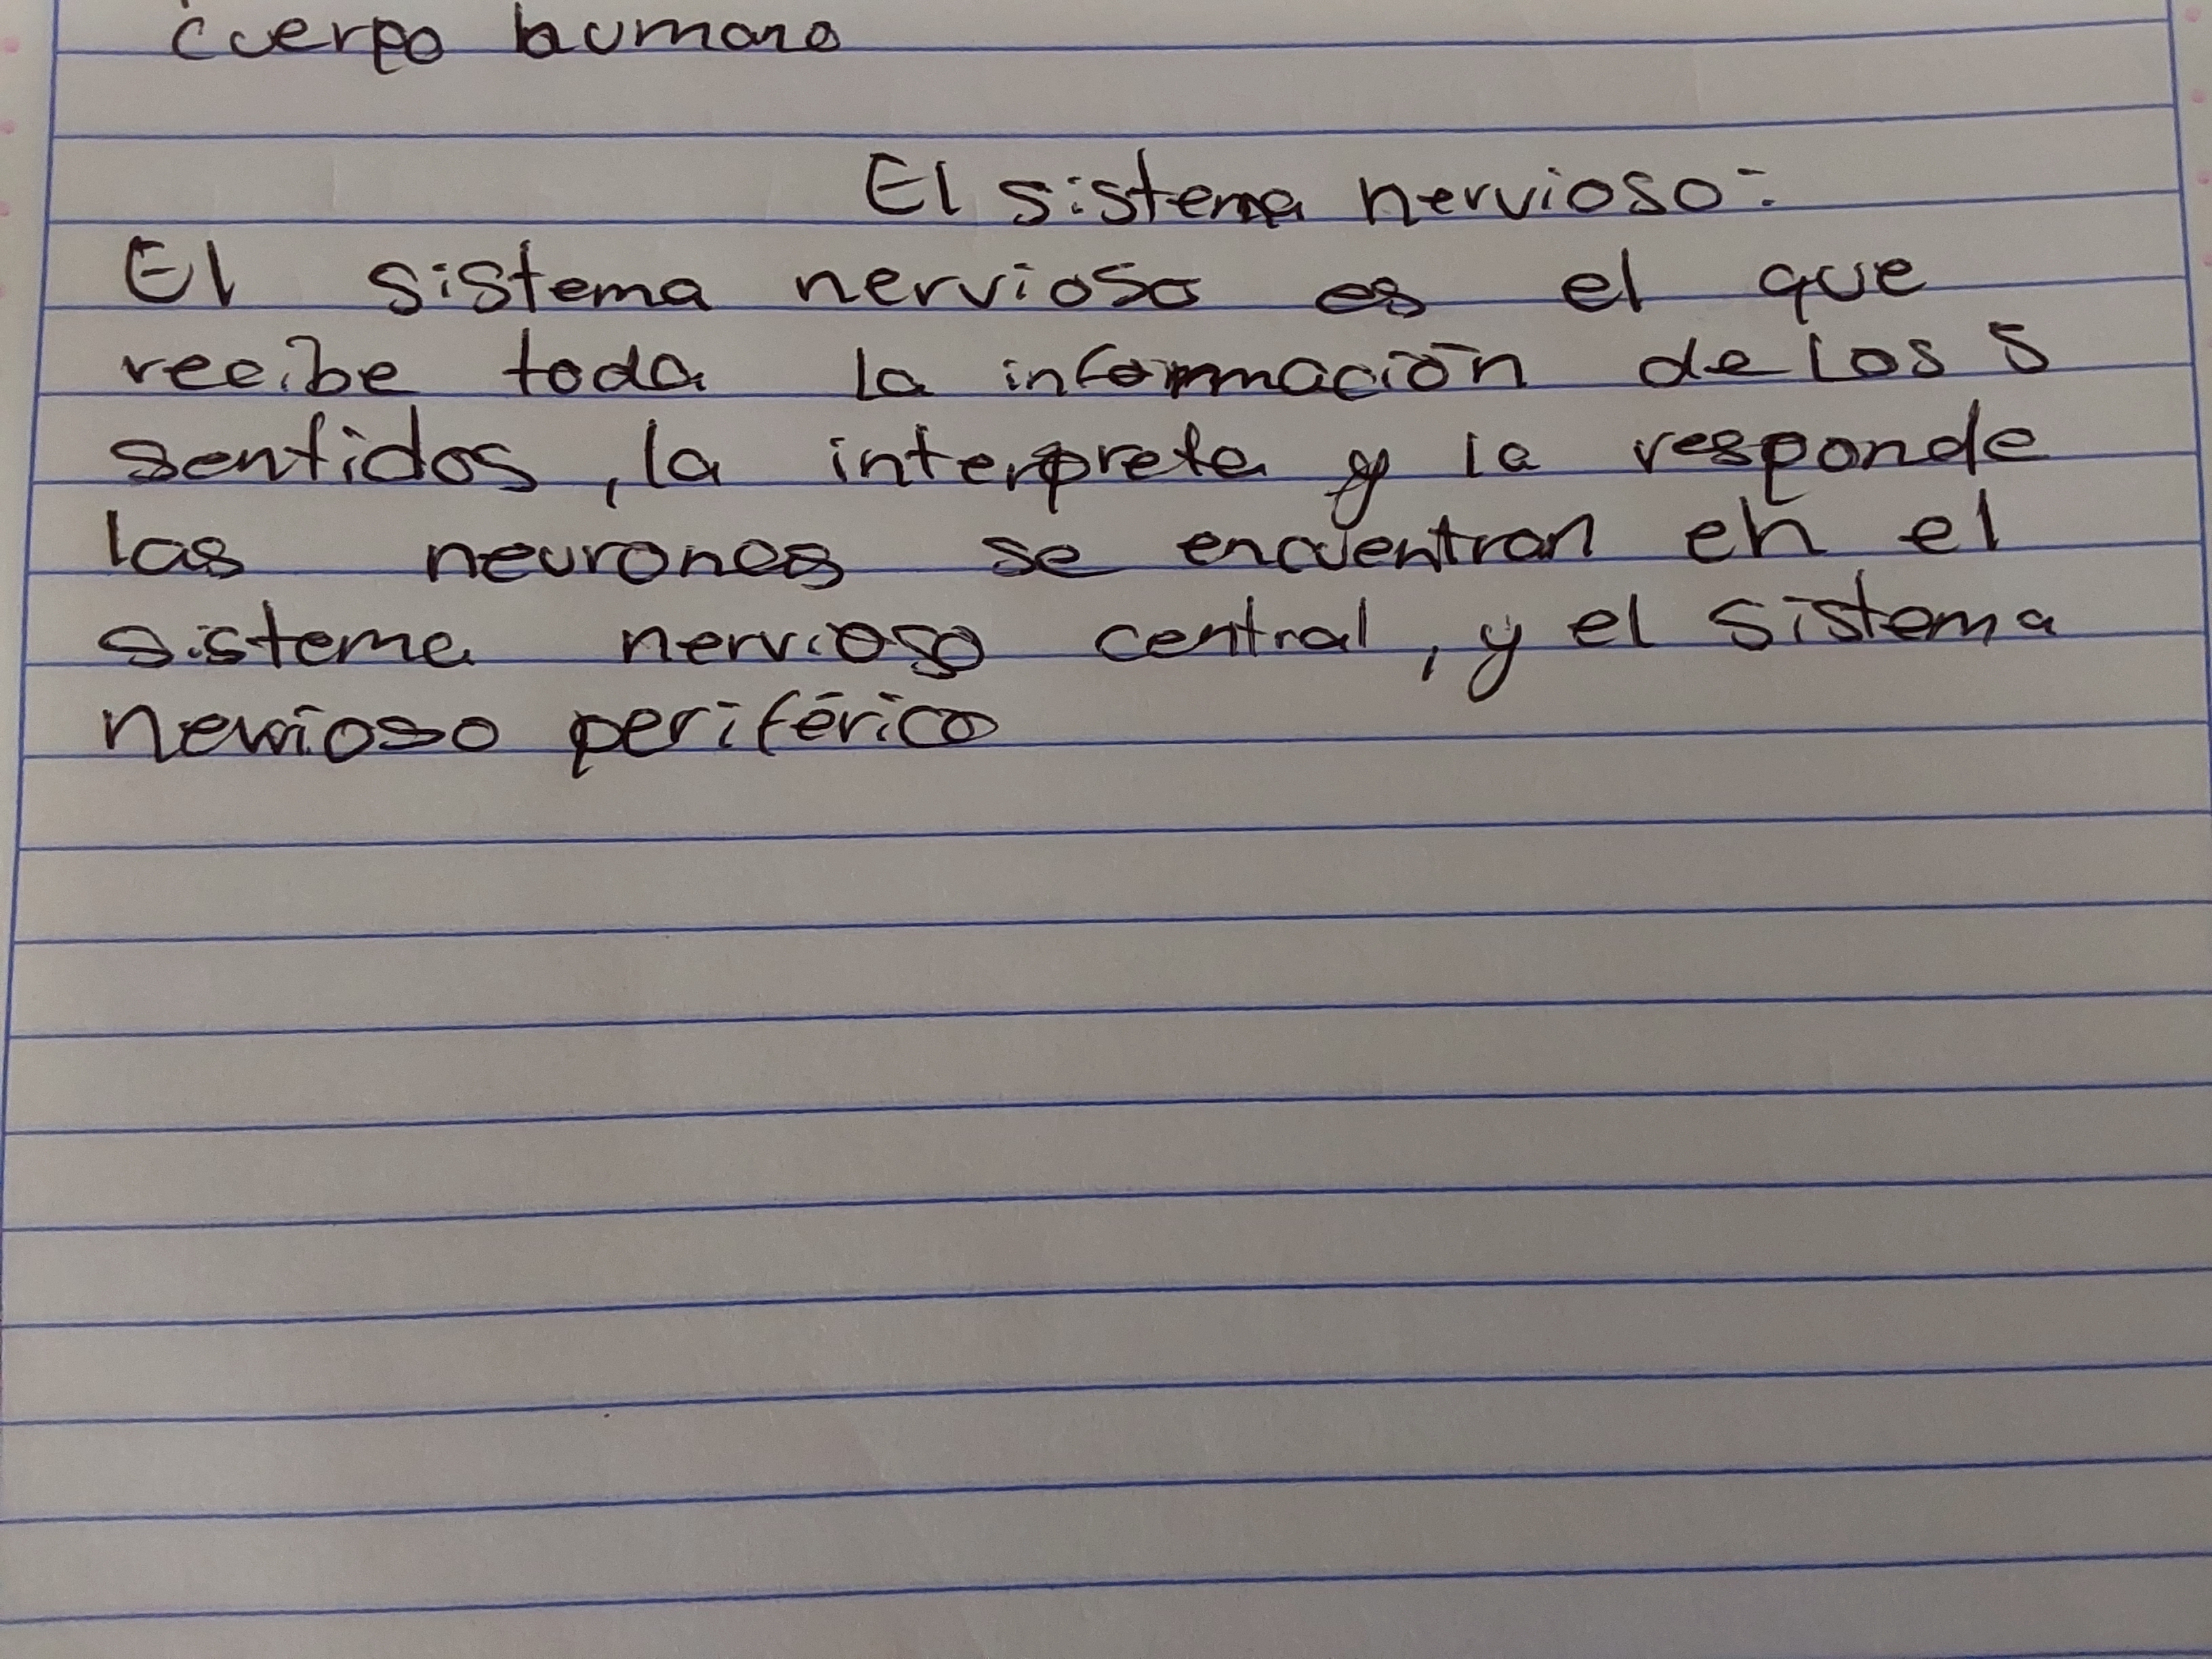 cuerpo humano
El sistema nervioso:
El sistema nervioso es el que
recibe toda la información de los 5
sentidos, la interpreta y la responde
las neuronas se encuentran en el
sistema nervioso central, y el sistema
nervioso periférico